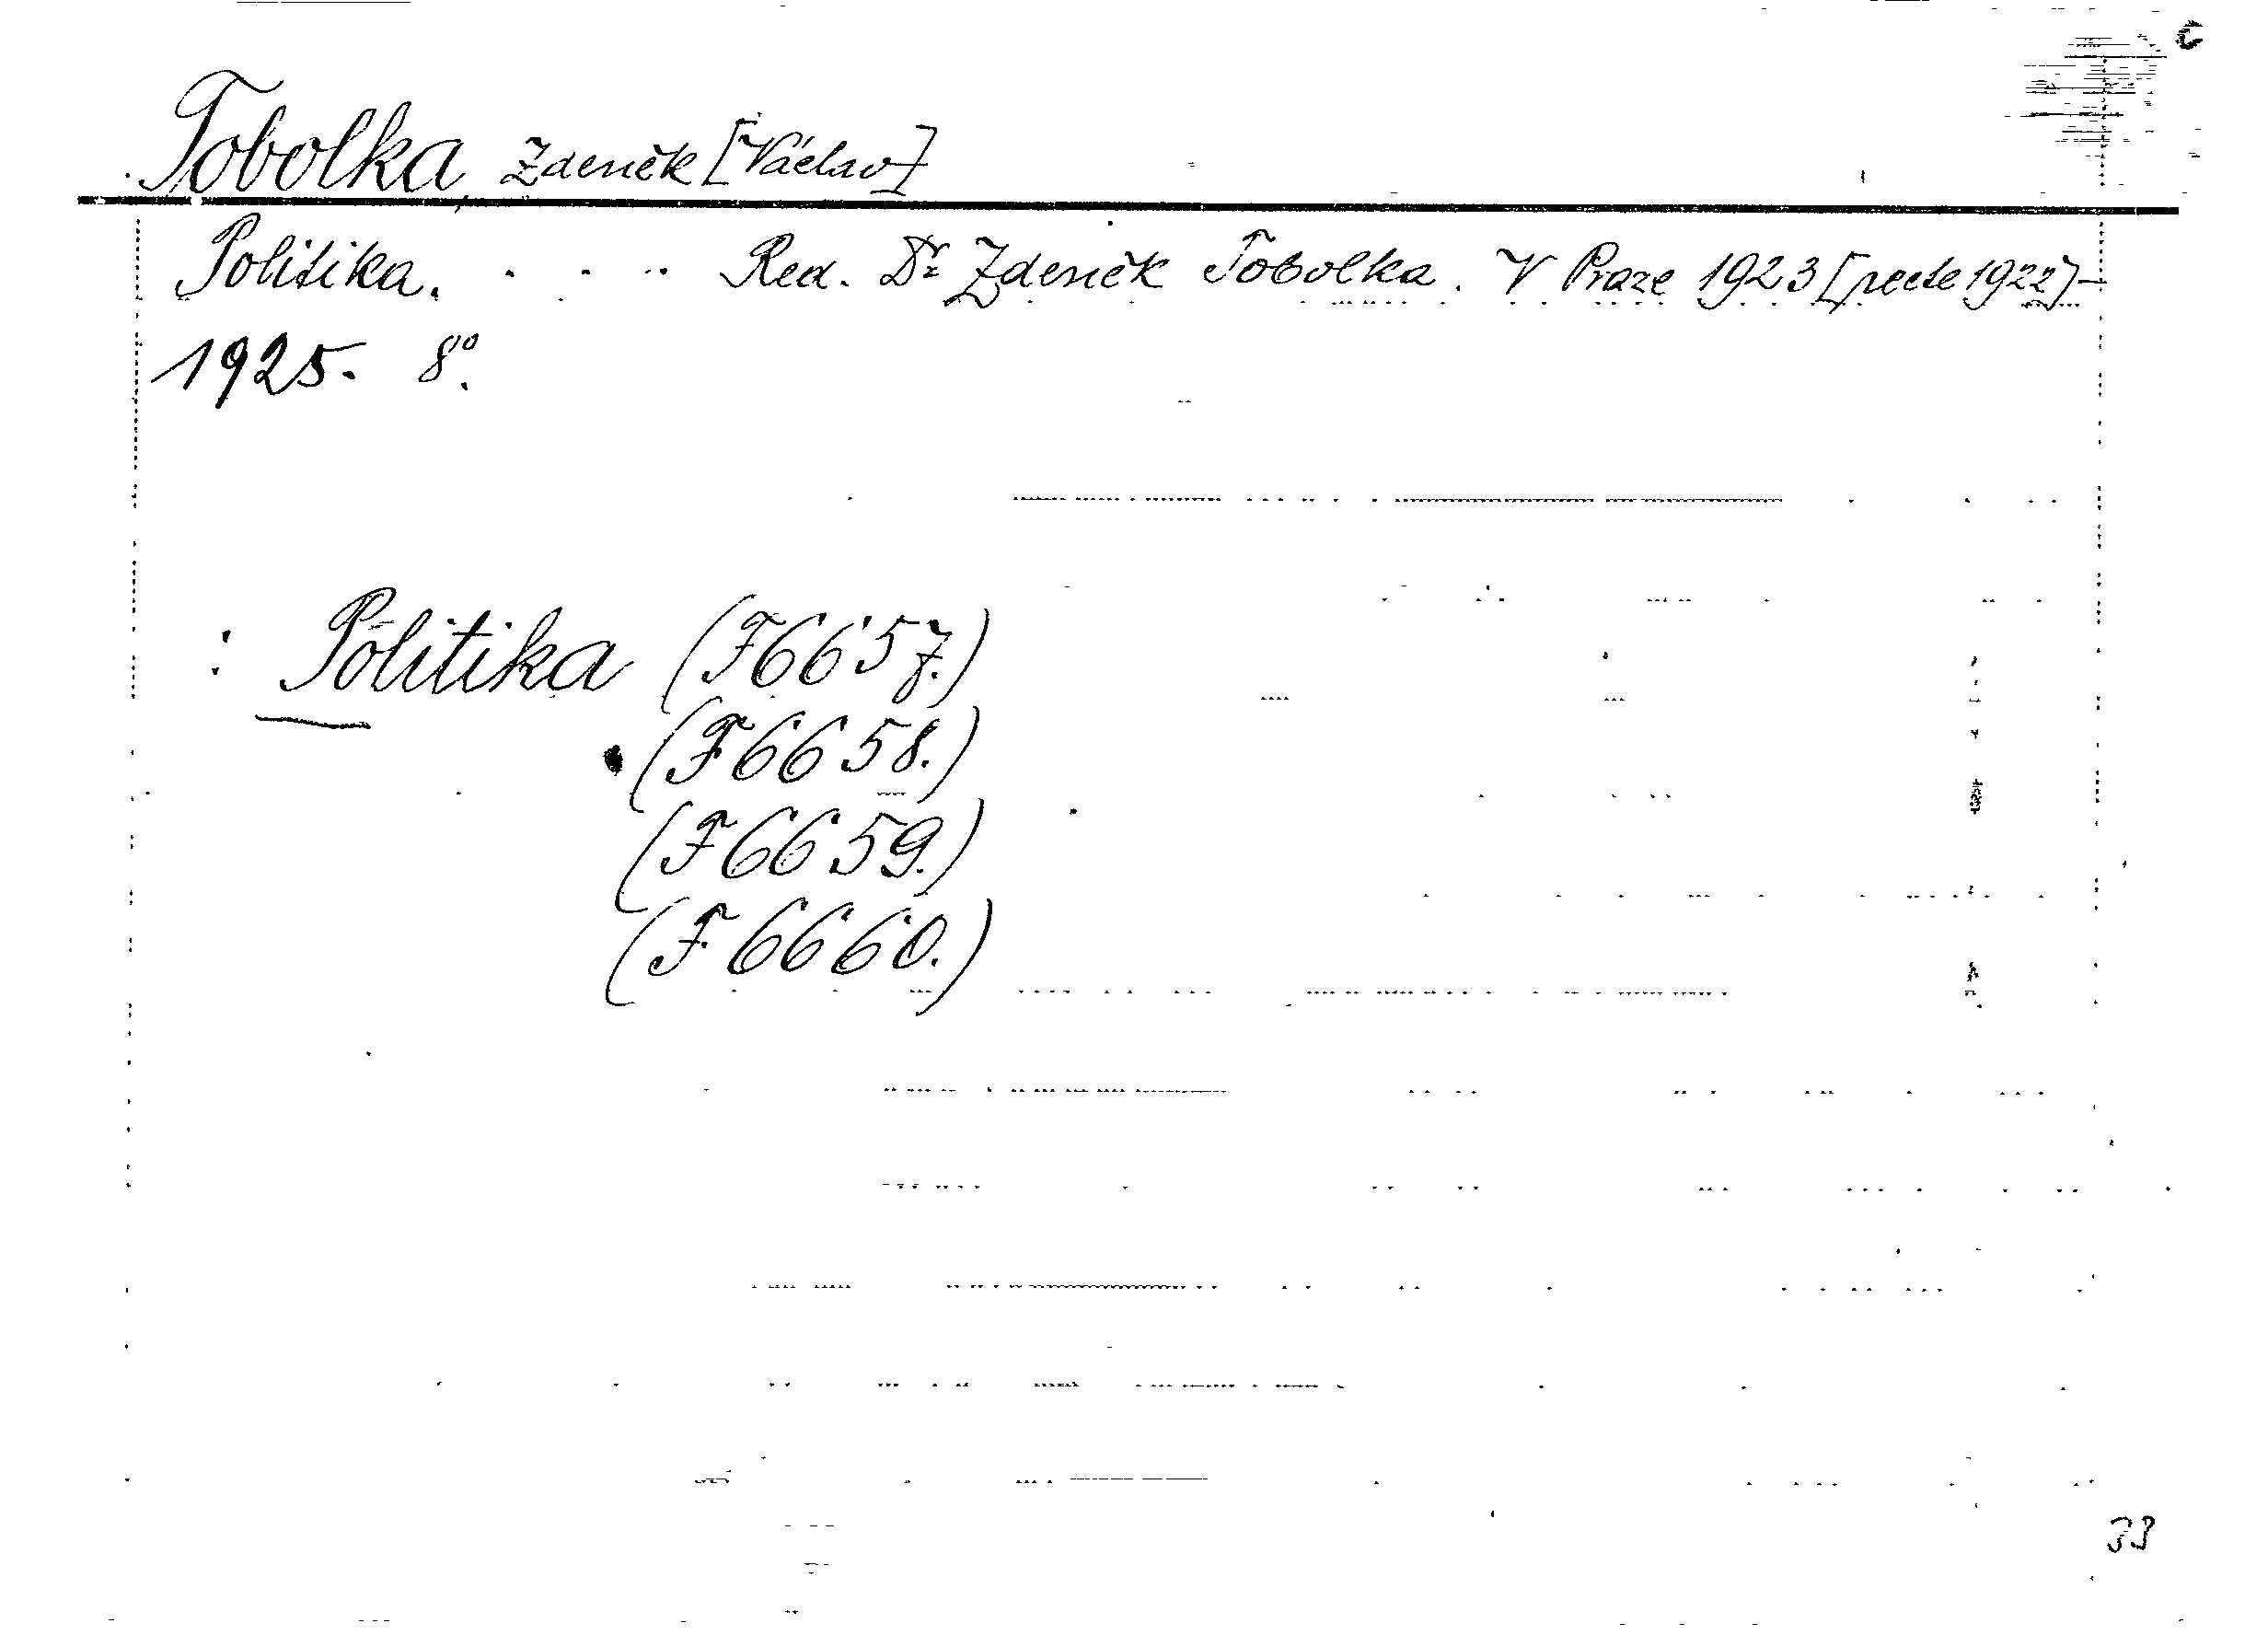 Tobolka Zdeněk [Václav]
Politika. . . . Red. Dr Zdeněk Tobolka. V Praze 1923 [recte 1922]-
1925. 8°.
: Politika (F6657.)
(F6658.)
(F6659.)
(F6660.)
33